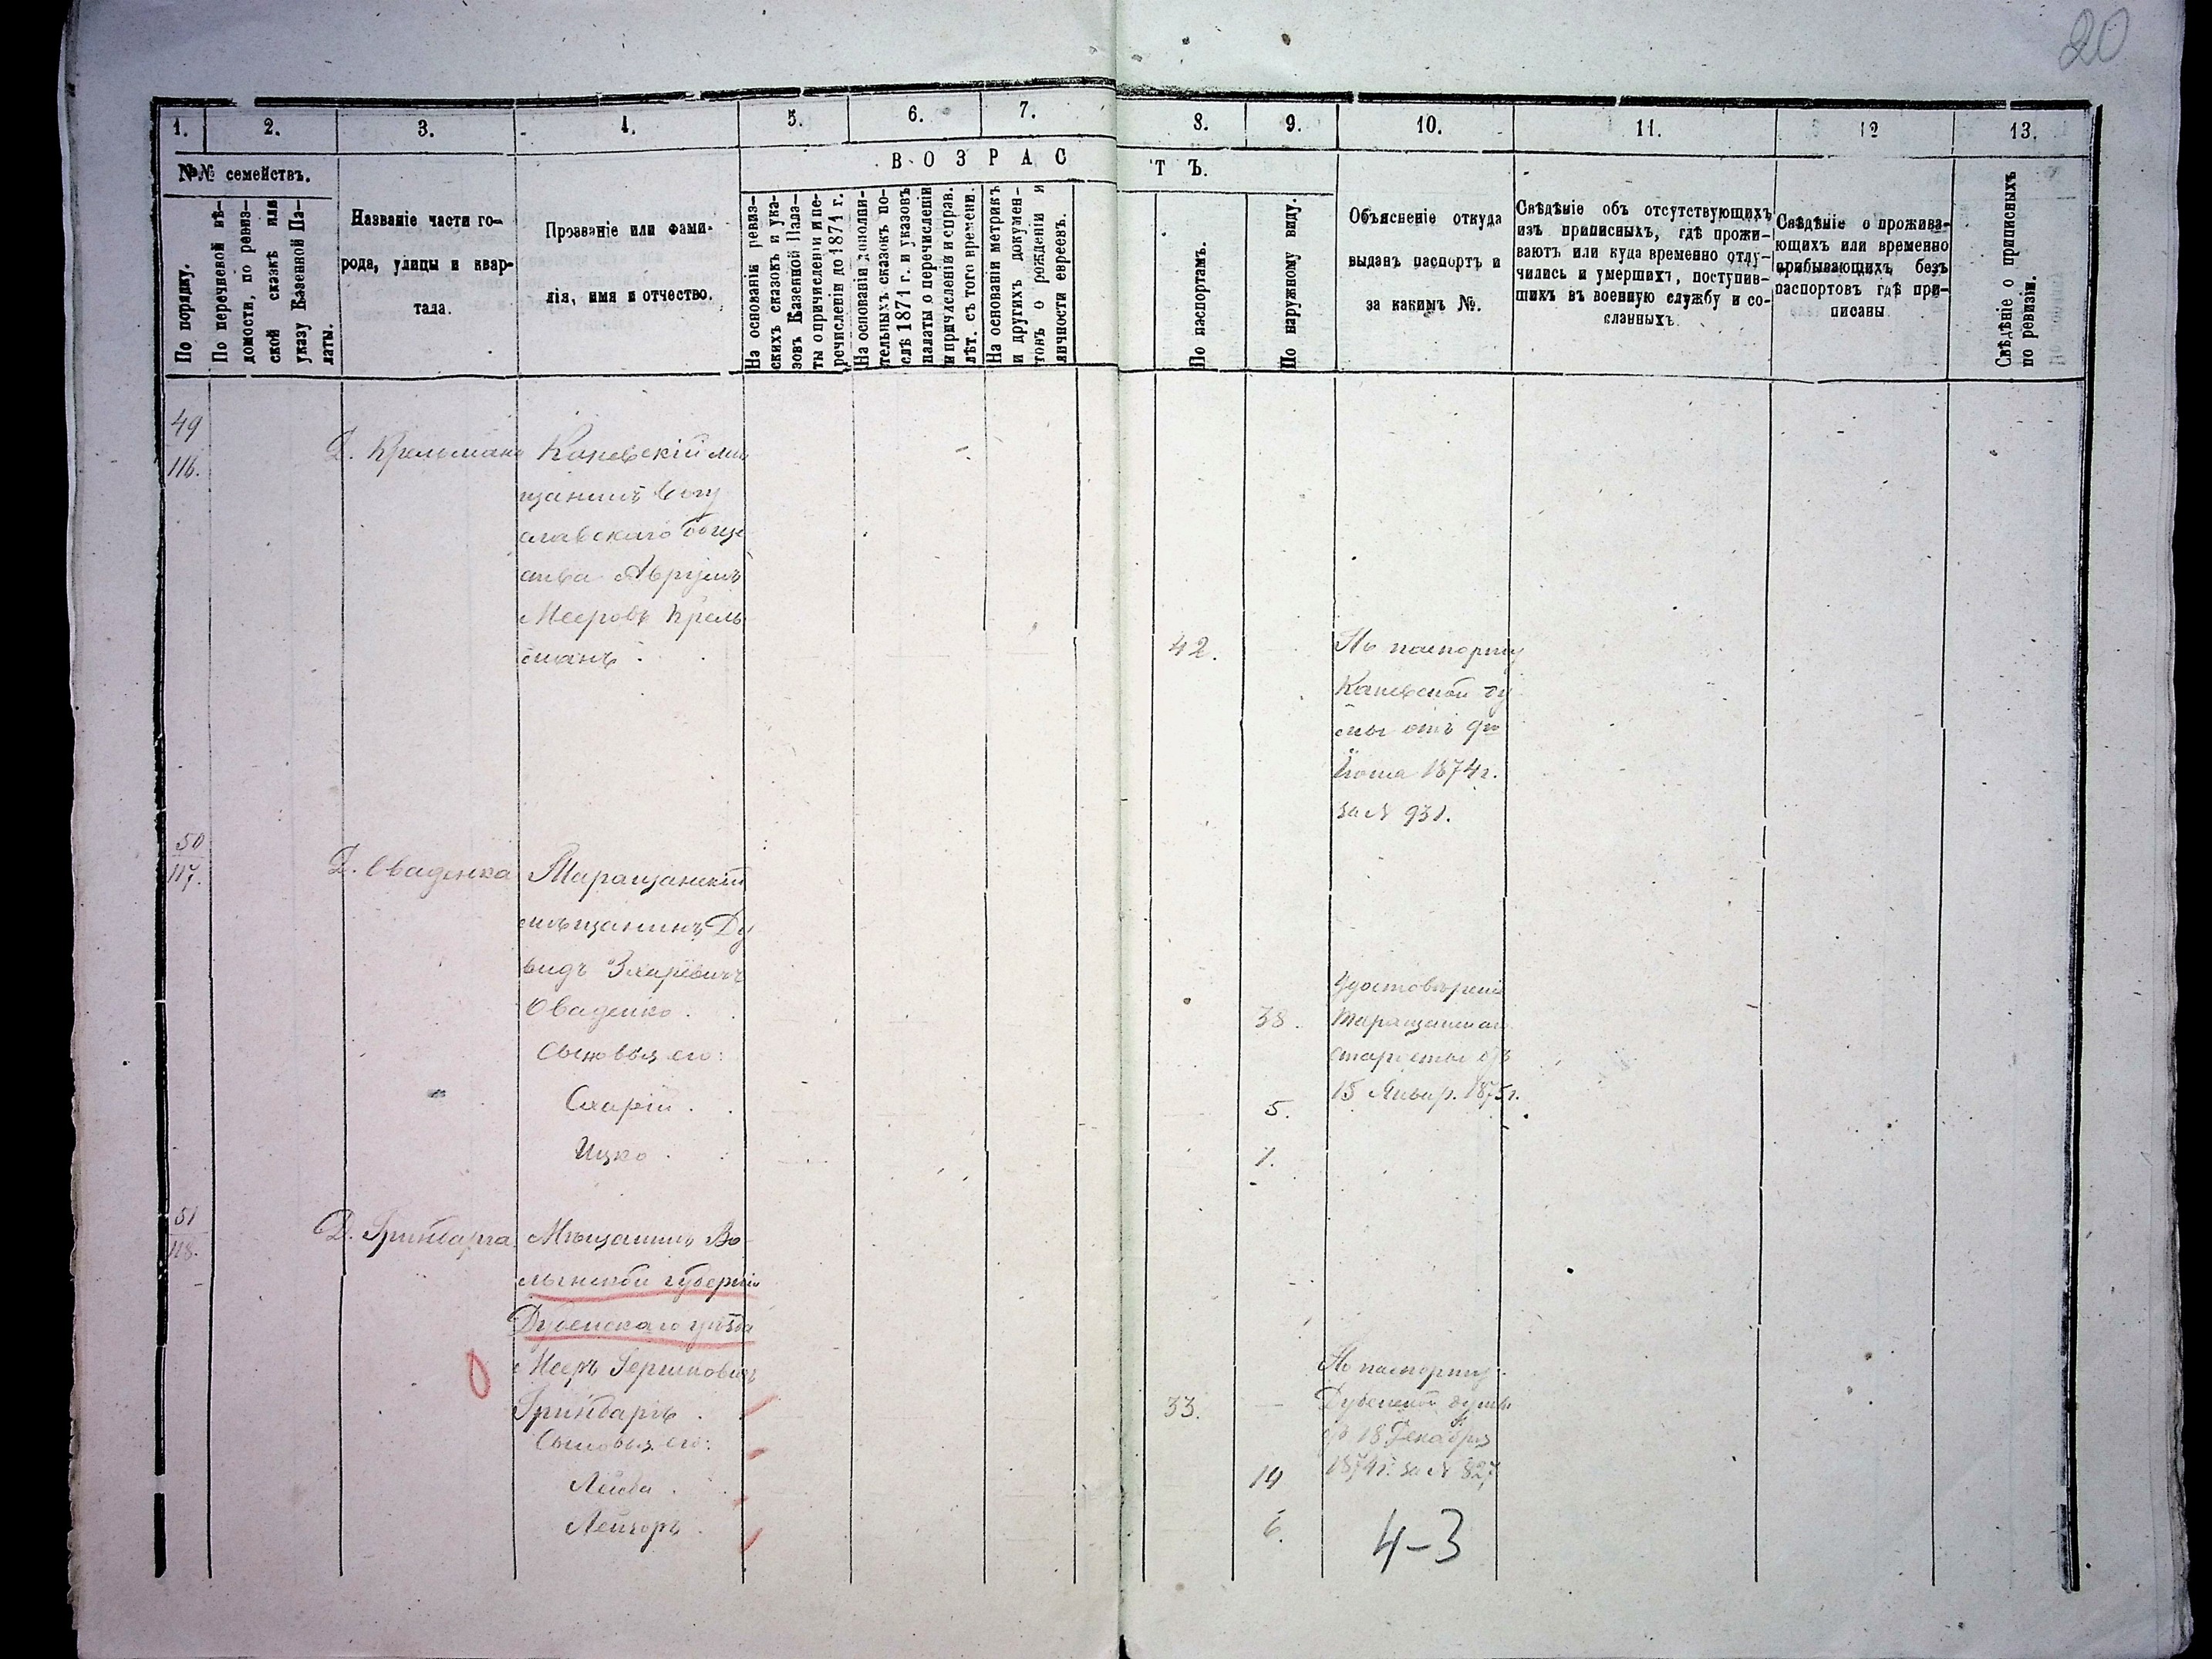 20
1. 2. 3. 4. 5. 6. 7. 8. 9. 10. 11. 12 13.
№№ семействъ.
ВОЗРАСТЪ.
По порядку.
По перечневой вѣ-
домости, по ревиз-
ской сказкѣ или
указу Казенной Па-
латы.
Названіе части го-
рода, улицы и квар-
тала.
Прозваніе или фами-
лія, имя и отчество.
На основаніи ревиз-
скихъ сказокъ и ука-
зовъ Казенной Пала-
ты о причисленіи и пе-
речисленіи до 1871 г.
На основаніи дополни-
тельныхъ сказокъ по-
слѣ 1871 г. и указовъ
палаты о перечисленіи
и причисленіи и справ.
лѣт. съ того времени.
На основаніи метрикъ
и другихъ докумен-
товъ о рожденіи и
личности евреевъ.
По паспортамъ.
По наружному виду.
Объясненіе откуда
выданъ паспортъ и
за какимъ №.
Свѣдѣніе объ отсутствующихъ
изъ приписныхъ, гдѣ прожи-
ваютъ или куда временно отлу-
чились и умершихъ, поступив-
шихъ въ военную службу и со-
сланныхъ.
Свѣдѣніе о прожива-
ющихъ или временно
прибывающихъ безъ
паспортовъ гдѣ при-
писаны
Свѣдѣніе о приписныхъ
по ревизіи.
49
116.
Д. Крельмана
Каневскій мѣ
щанинъ Богу
славскаго обще
ства Аврумъ
Мееровъ Крель
манъ
42.
По паспорту
Каневской ду
мы отъ 9го
Іюня 1874 г.
за N 931.
50
117.
Д. Оваденка
Таращанскій
мѣщанинъ Ду
видъ
Оваденко
Сыновья его:
Схарій
Ицко
38.
5.
1.
Удостовѣреніе
Таращанскаго
старосты отъ
15 Январ. 1875 г.
51
118.
Д. Гринбарга
Мѣщанинъ Во
лынской губерніи
Дубенскаго уѣзда
Мееръ Гершковичъ
Гринбаргъ
Сыновья его:
Лейба
Лейзоръ
33.
14
6.
По паспорту
Дубенской думы
отъ 18 Декабря
1874 г. за N 827
4-3